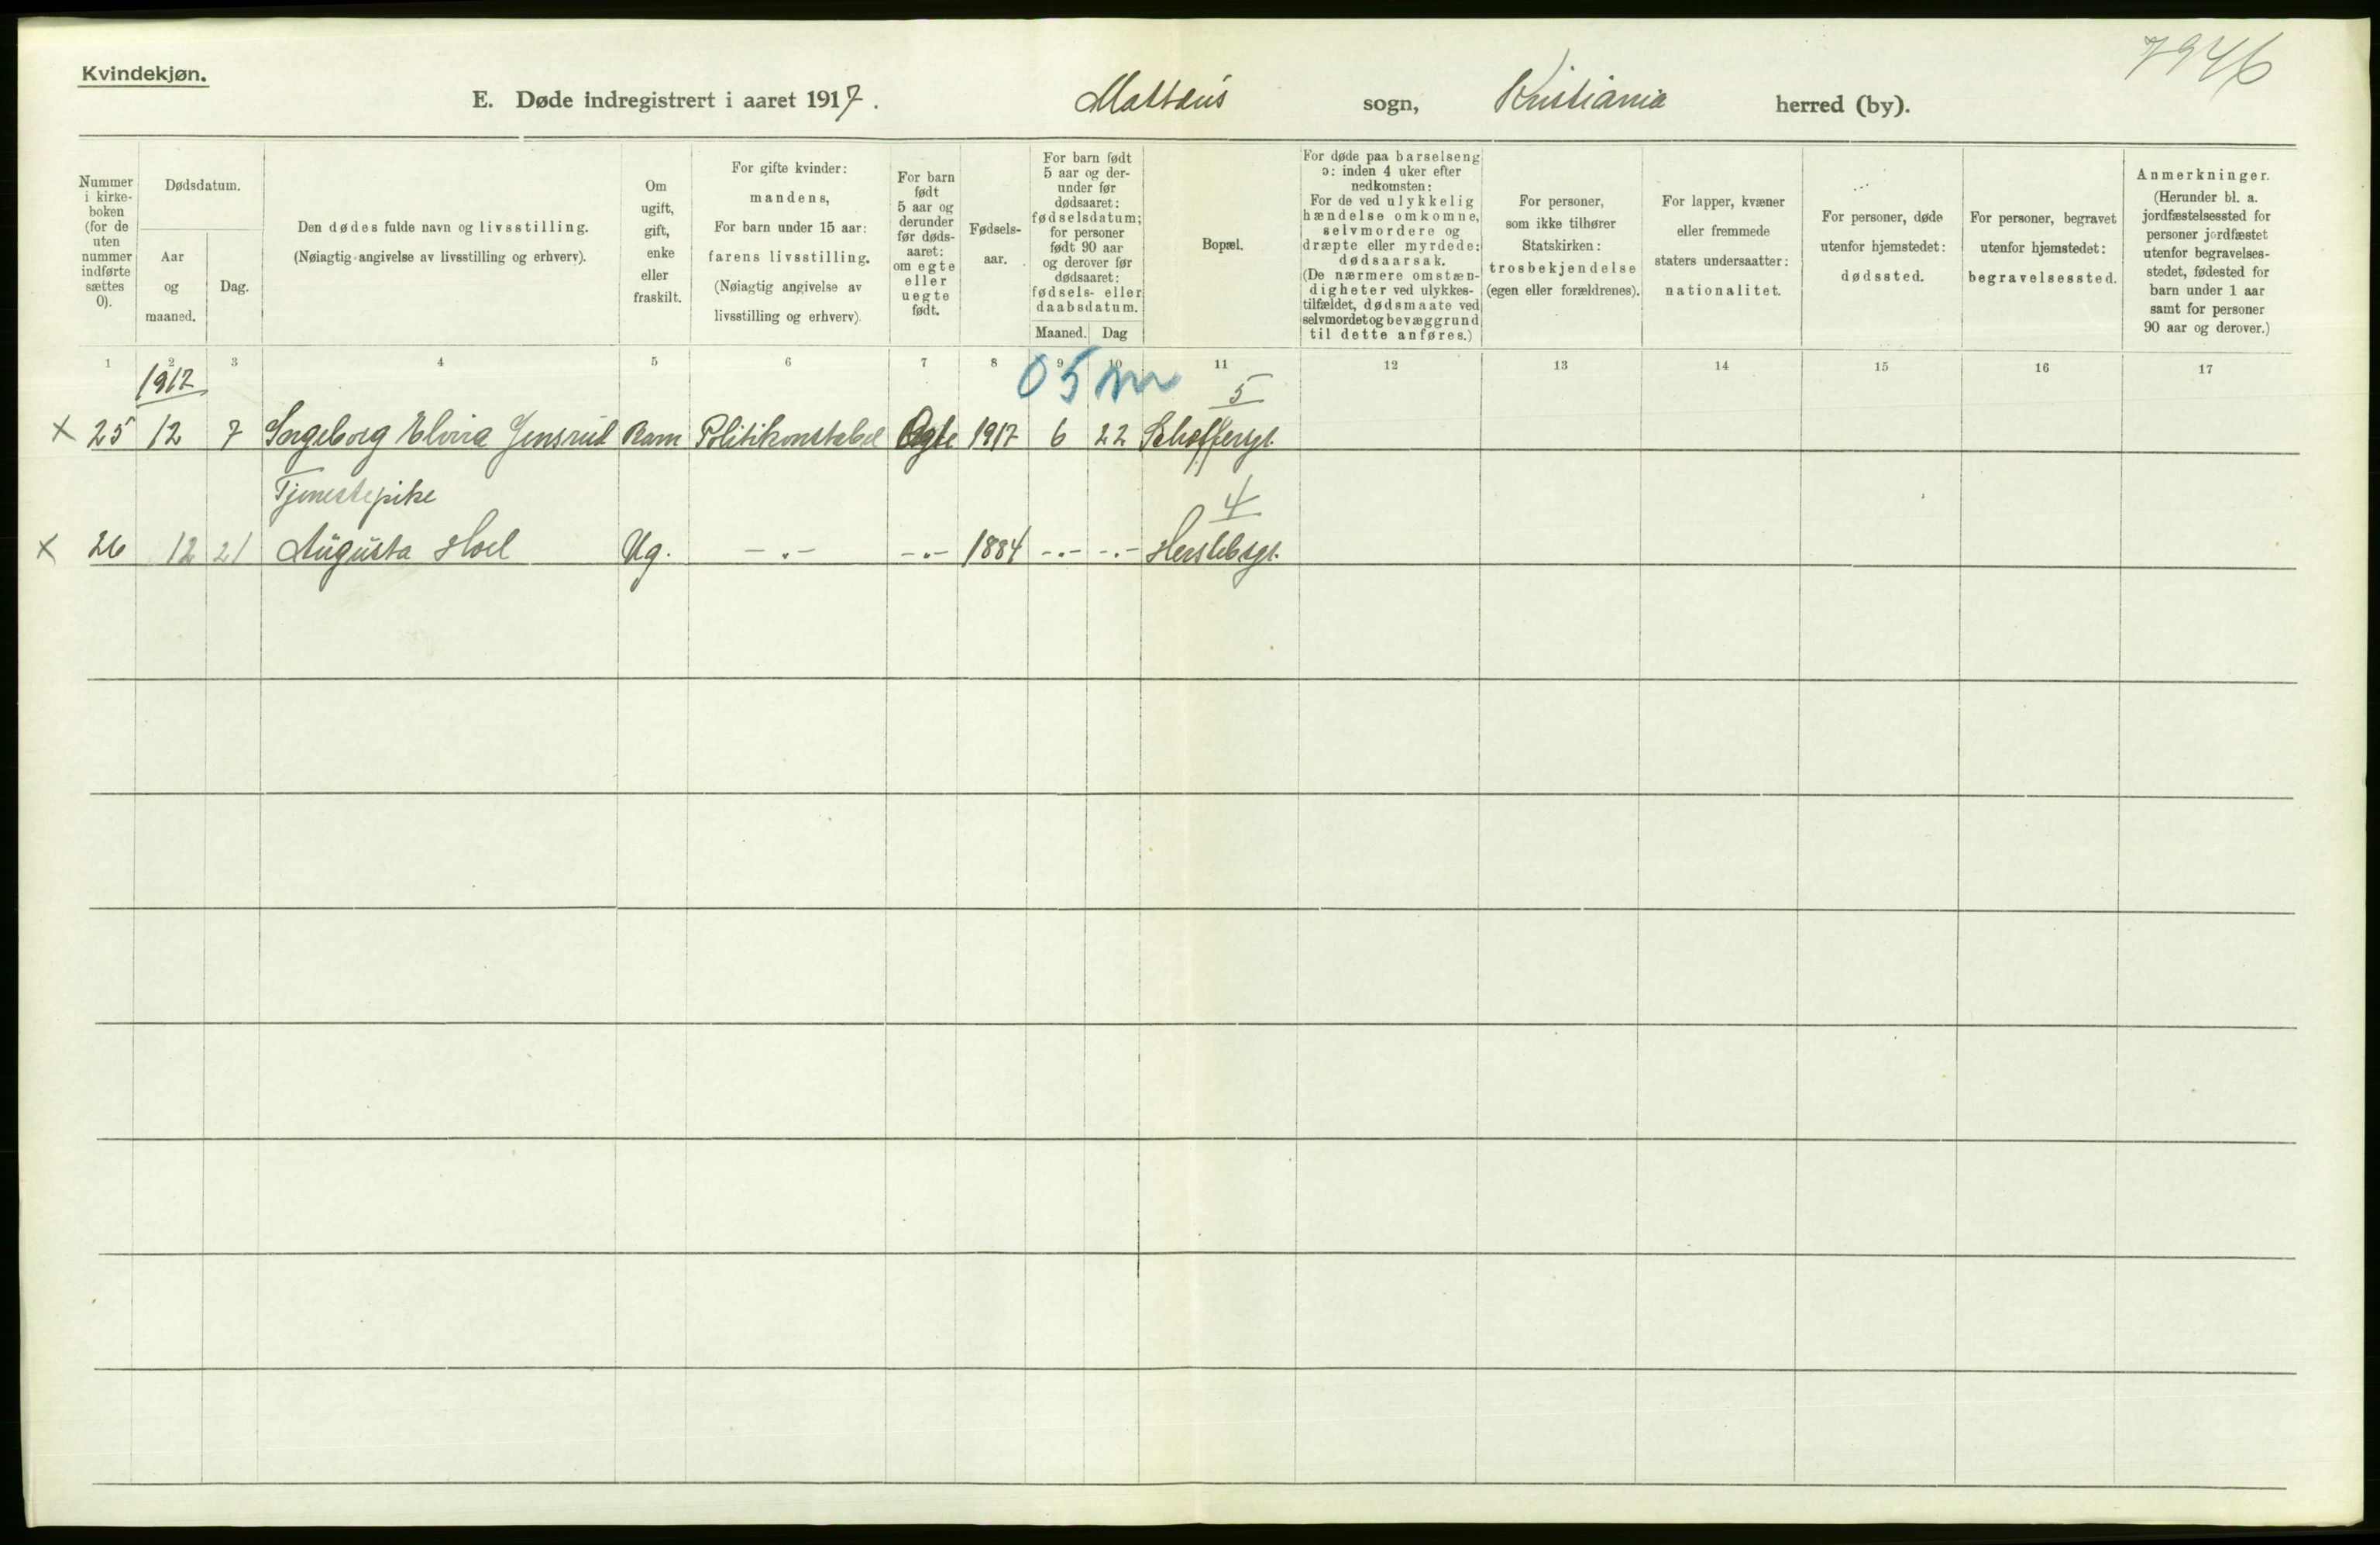 7946
Kvindekjøn.
E. Døde indregistrert i aaret 1917. Mattæus sogn, Kristiania herred (by).
Nummer i kirke- boken (for de uten nummer indførte sættes 0).
Dødsdatum.
Aar og maaned.
Dag.
Den dødes fulde navn og livsstilling.
(Nøiagtig angivelse av livsstilling og erhverv).
Om ugift, gift, enke eller fraskilt.
For gifte kvinder:
mandens,
For barn under 15 aar:
farens livsstilling.
(Nøiagtig angivelse av
livsstilling og erhverv).
For barn født 5 aar og derunder før døds- aaret: om egte eller uegte født.
Fødsels- aar.
For barn født 5 aar og der- under før dødsaaret: fødselsdatum; for personer født 90 aar og derover før dødsaaret: fødsels- eller daabsdatum.
Maaned. Dag
Bopæl.
For døde paa barselseng ɔ: inden 4 uker efter nedkomsten: For de ved ulykkelig hændelse omkomne, selvmordere og dræpte eller myrdede: dødsaarsak. (De nærmere omstæn- digheter ved ulykkes- tilfældet, dødsmaate ved selvmordet og bevæggrund til dette anføres.)
For personer, som ikke tilhører Statskirken: trosbekjendelse (egen eller forældrenes).
For lapper, kvæner eller fremmede staters undersaatter: nationalitet.
For personer, døde utenfor hjemstedet: dødssted.
For personer, begravet utenfor hjemstedet: begravelsessted.
Anmerkninger. (Herunder bl. a. jordfæstelsessted for personer jordfæstet utenfor begravelses- stedet, fødested for barn under 1 aar samt for personer 90 aar og derover.)
1 2 3 4 5 6 7 8 9 10 11 12 13 14 15 16 17
1917 05 m 5
x 25 12 7 Ingeborg Elvira Jensrud Barn Politikonstabel Ægte 1917 6 22 Schoffersgt.
Tjenestepike 4
x 26 12 21 Augusta Hoel Ug. -"- -"- 1884 -"- -"- Herslebsgt.